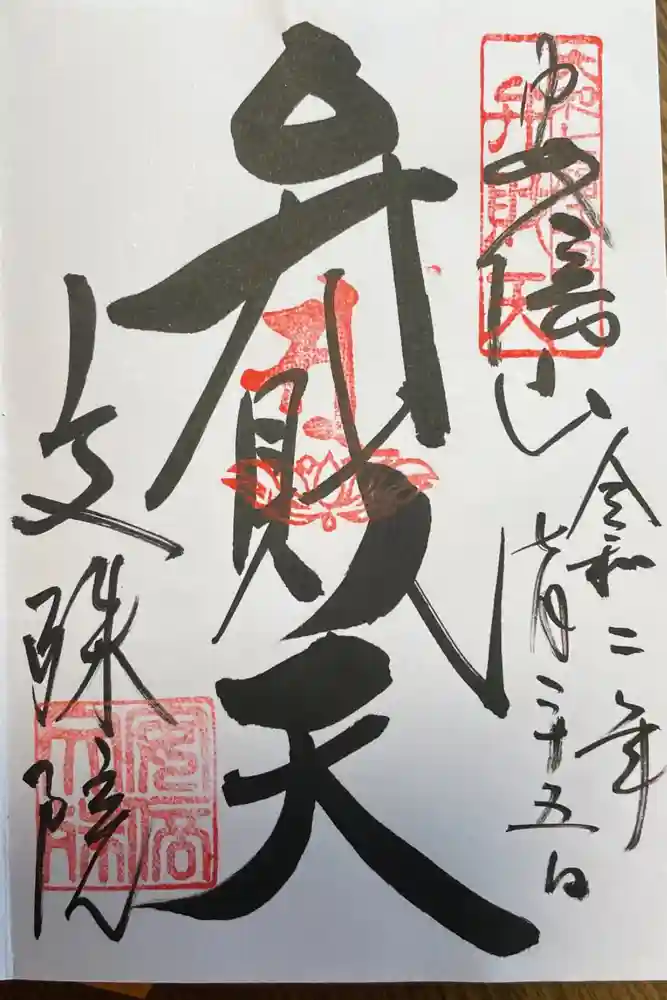 安倍山
令和二年
七月二十五日
弁財天
文殊院